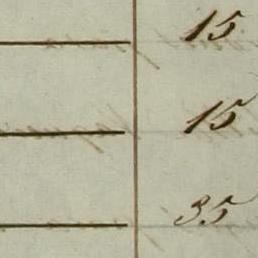 15
15
35